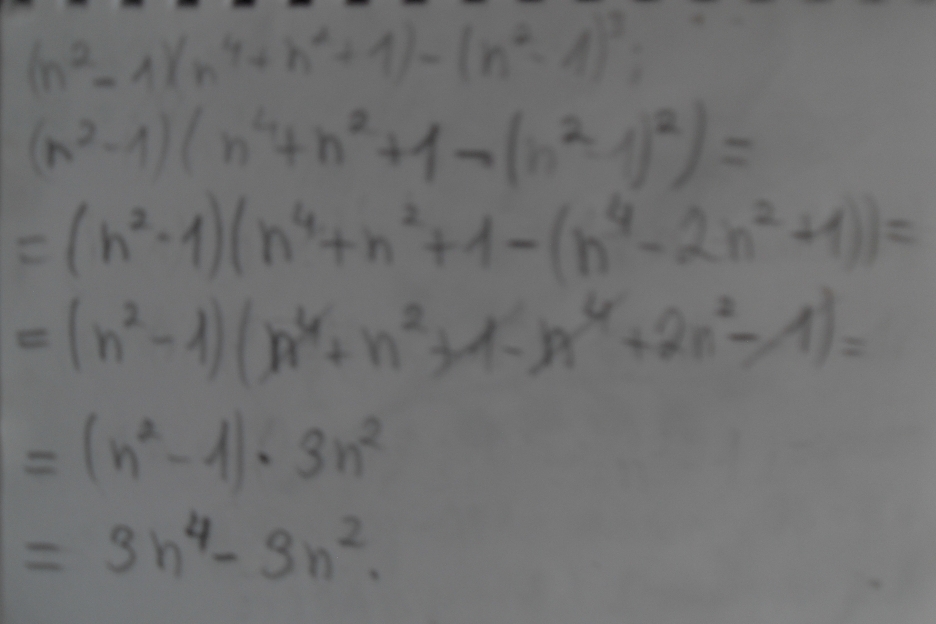 (n²-1)(n⁴+n²+1)-(n²-1)³;
(n²-1)(n⁴+n²+1-(n²-1)²)=
=(n²-1)(n⁴+n²+1-(n⁴-2n²+1))=
=(n²-1)(n⁴+n²+1-n⁴+2n²-1)=
=(n²-1)·3n²
=3n⁴-3n².